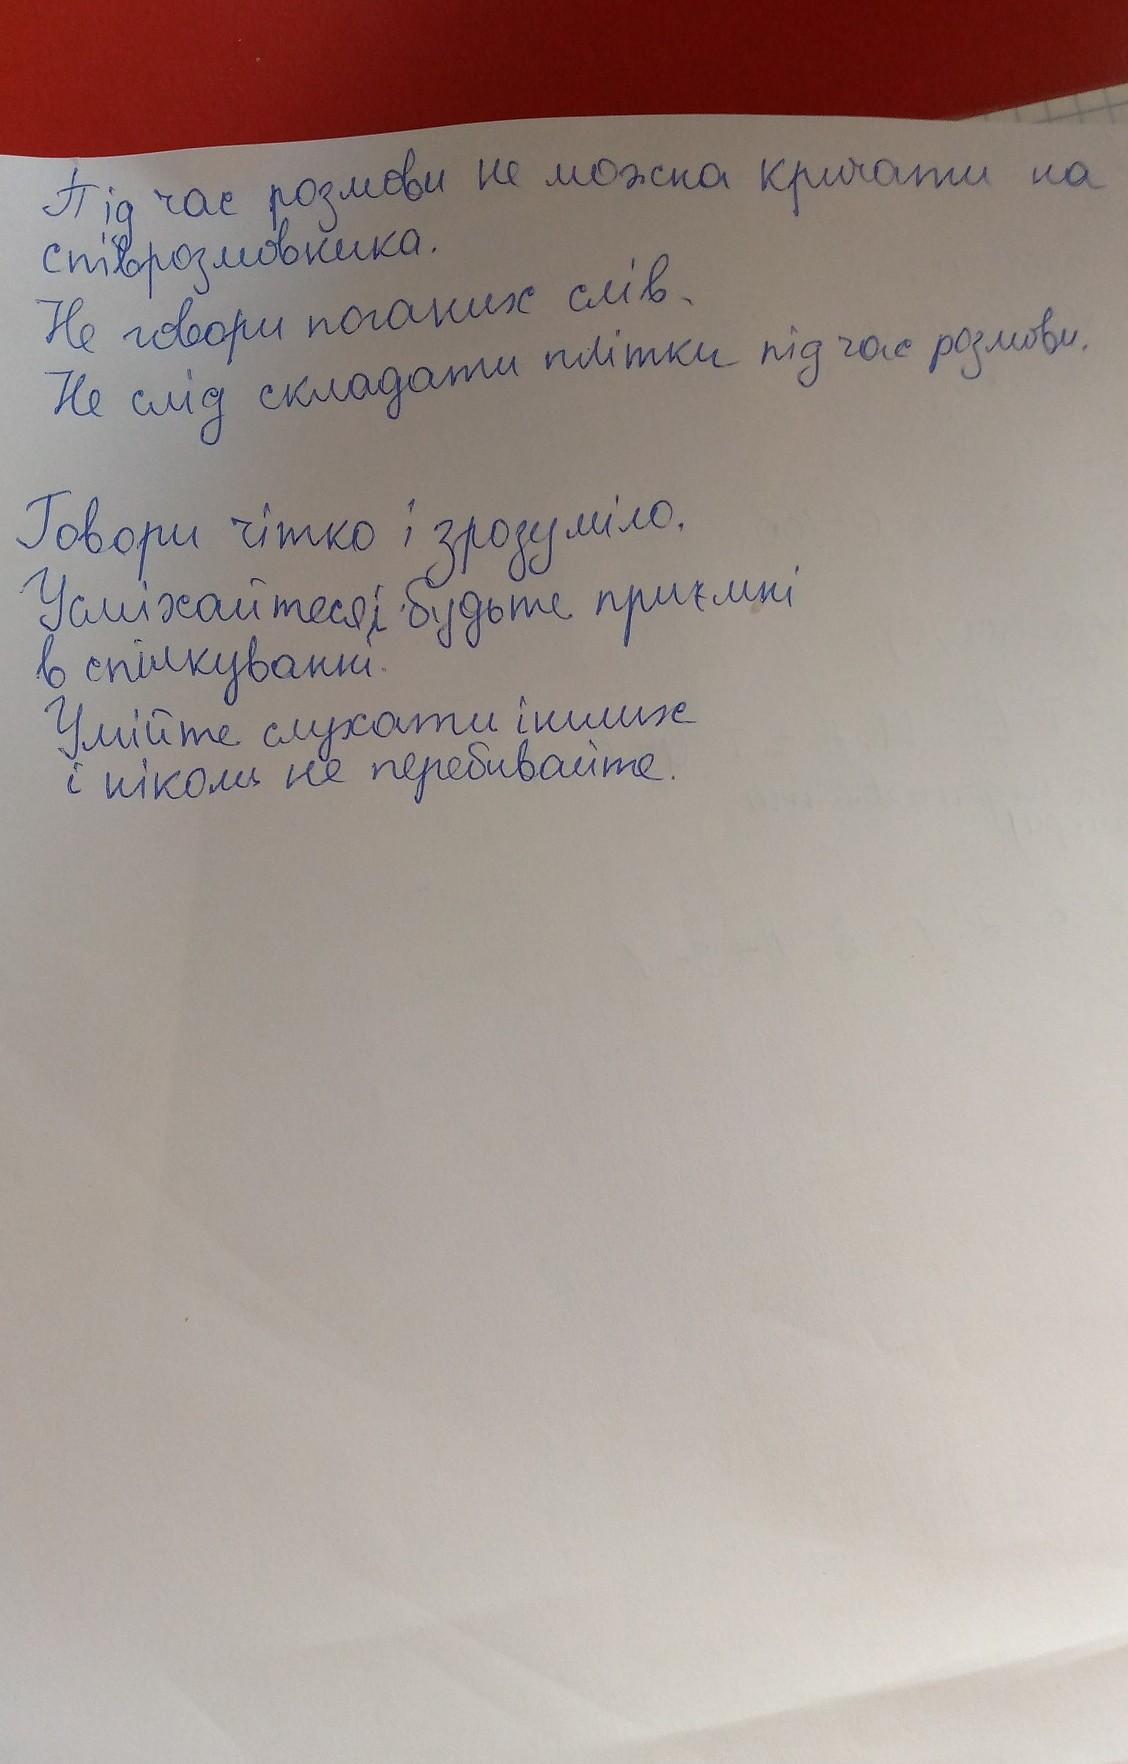 Під час розмови не можна кричати на
співрозмовника.
Не говори поганих слів.
Не слід складати плітки під час розмови.
Говори чітко і зрозуміло.
Усміхайтеся і будьте приємні
в спілкуванні.
Умійте слухати інших
і ніколи не перебивайте.